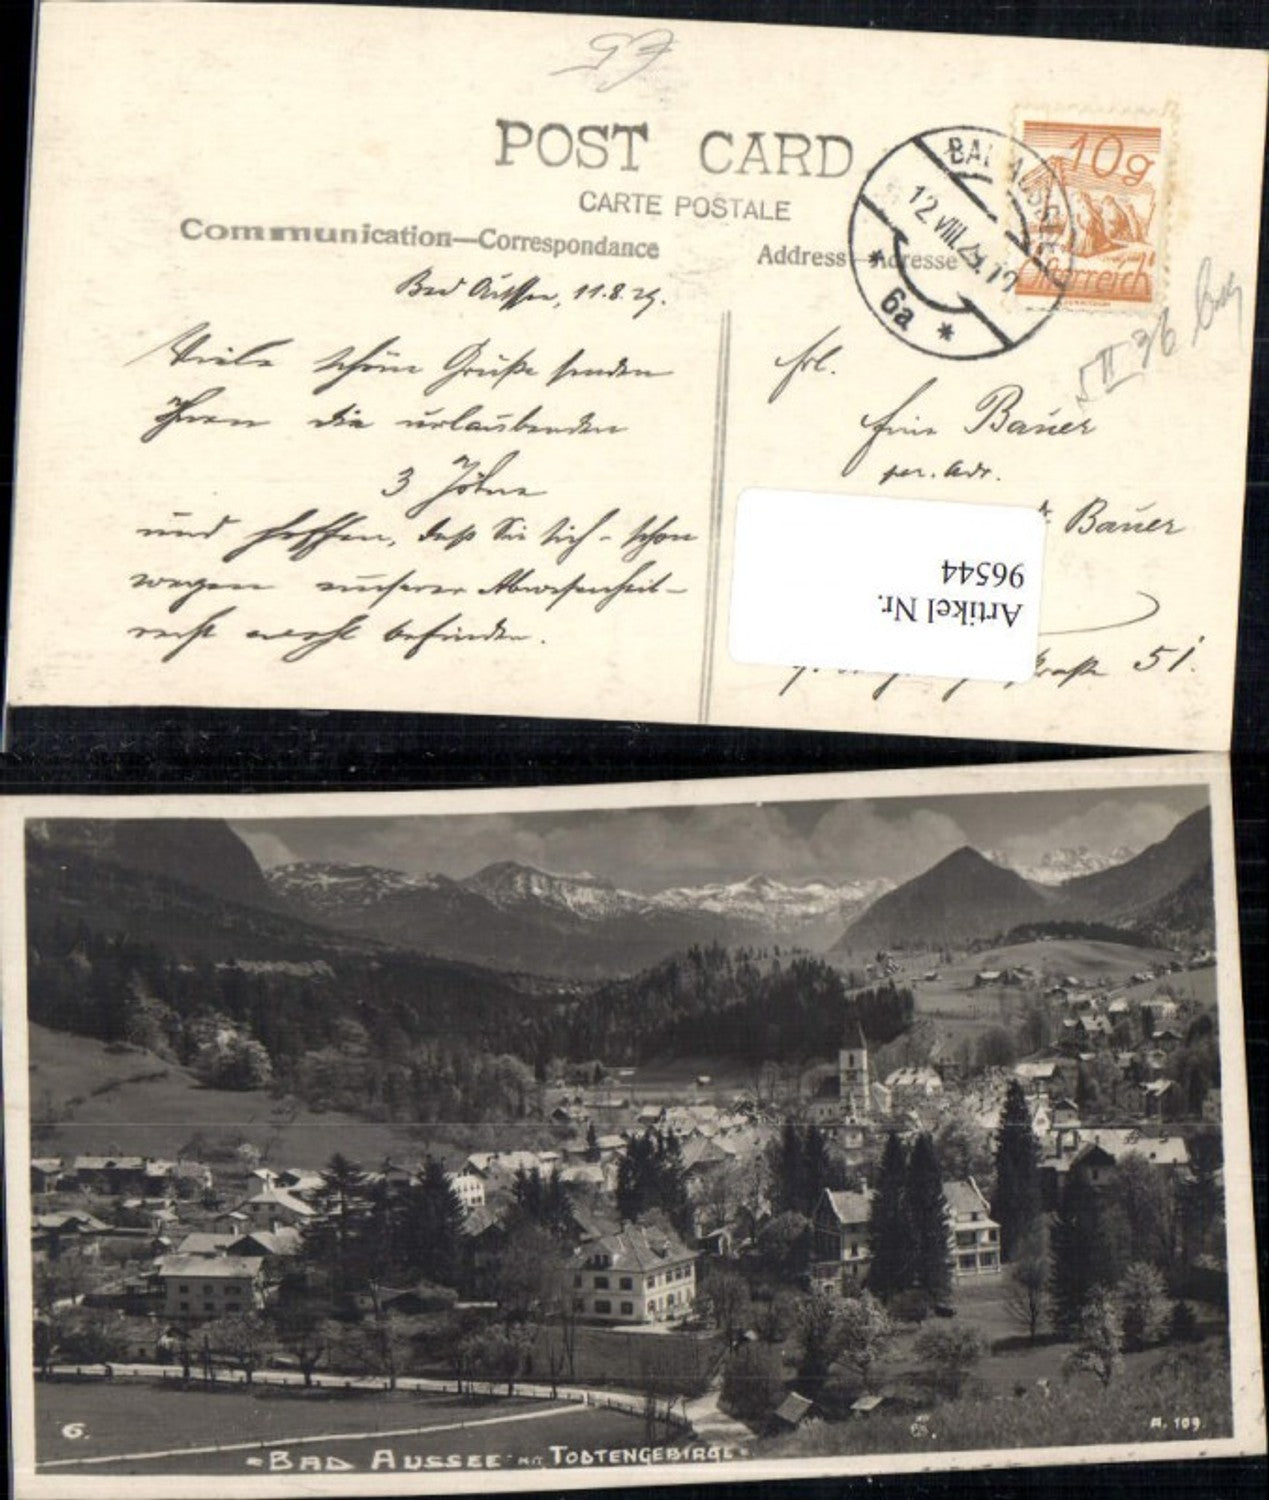 57
POST CARD
CARTE POSTALE
Communication—Correspondance
Address—Adresse
BAD AUSSEE
12.VIII.29.17
* 6a *
10g
Österreich
Bad Aussee, 11.8.29.
Viele schöne Grüße senden
Ihnen die urlaubenden
3
und hoffen, daß Sie sich – schon
wegen unserer Abwesenheit –
recht wohl befinden.
Frl.
Bauer
per. Adr.
Bauer
straße 51.
5 II 36
Artikel Nr.
96544
6.
BAD AUSSEE MIT TODTENGEBIRGE
A. 109